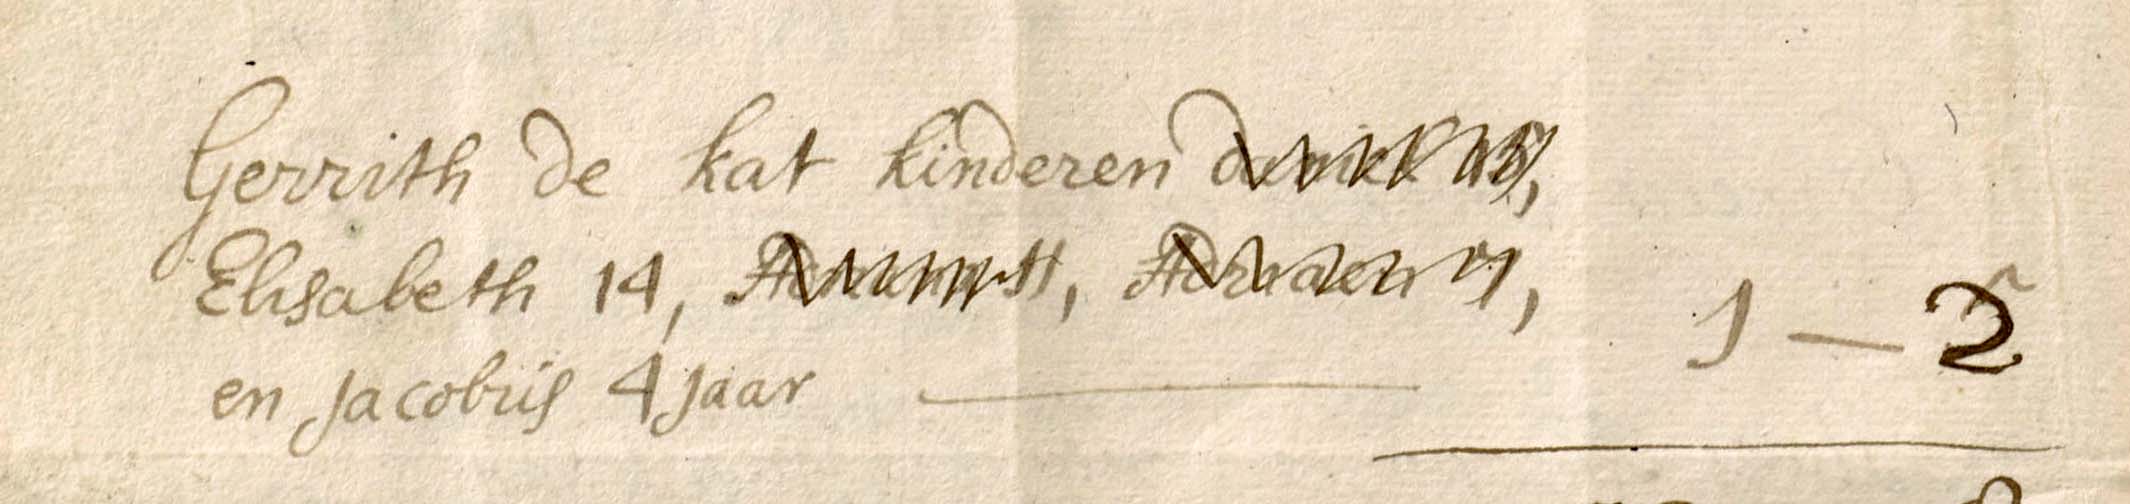 Gerrith de kat kinderen
Elisabeth 14, Adriaen
en Jacobus 4 Jaar
1 — 2